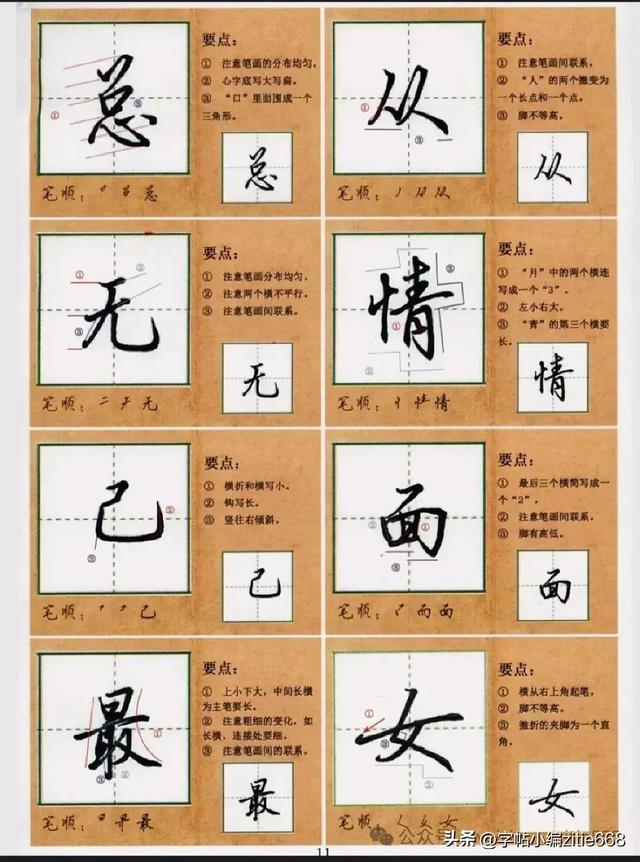 总
要点：
① 注意笔画的分布均匀，
② 心字底写大写扁。
③ “口”里面围成一个
三角形。
总
笔顺：
总
从
要点：
① 注意笔画间联系，
② “人”的两个撇变为
一个长点和一个点。
③ 脚不等高。
从
笔顺：
从
无
要点：
① 注意笔画分布均匀。
② 注意两个横不平行。
③ 注意笔画间联系。
无
笔顺：二 无
情
要点：
① “月”中的两个横连
写成一个“3”。
② 左小右大。
③ “青”的第三个横要
长。
情
笔顺：
情
己
要点：
① 横折和横写小。
② 钩写长。
③ 竖往右倾斜。
己
笔顺：
己
面
要点：
① 最后三个横简写成一
个“2”。
② 注意笔画间联系。
③ 脚有高低。
面
笔顺：
而 面
最
要点：
① 上小下大，中间长横
为主笔要长。
② 注意粗细的变化，如
长横，连接处要细。
③ 注意笔画间的联系。
最
笔顺：
最
女
要点：
① 横从右上角起笔，
② 脚不等高。
③ 撇折的夹脚为一个直
角。
女
笔顺：
女
公众号
头条 @字帖小编zitie668
11